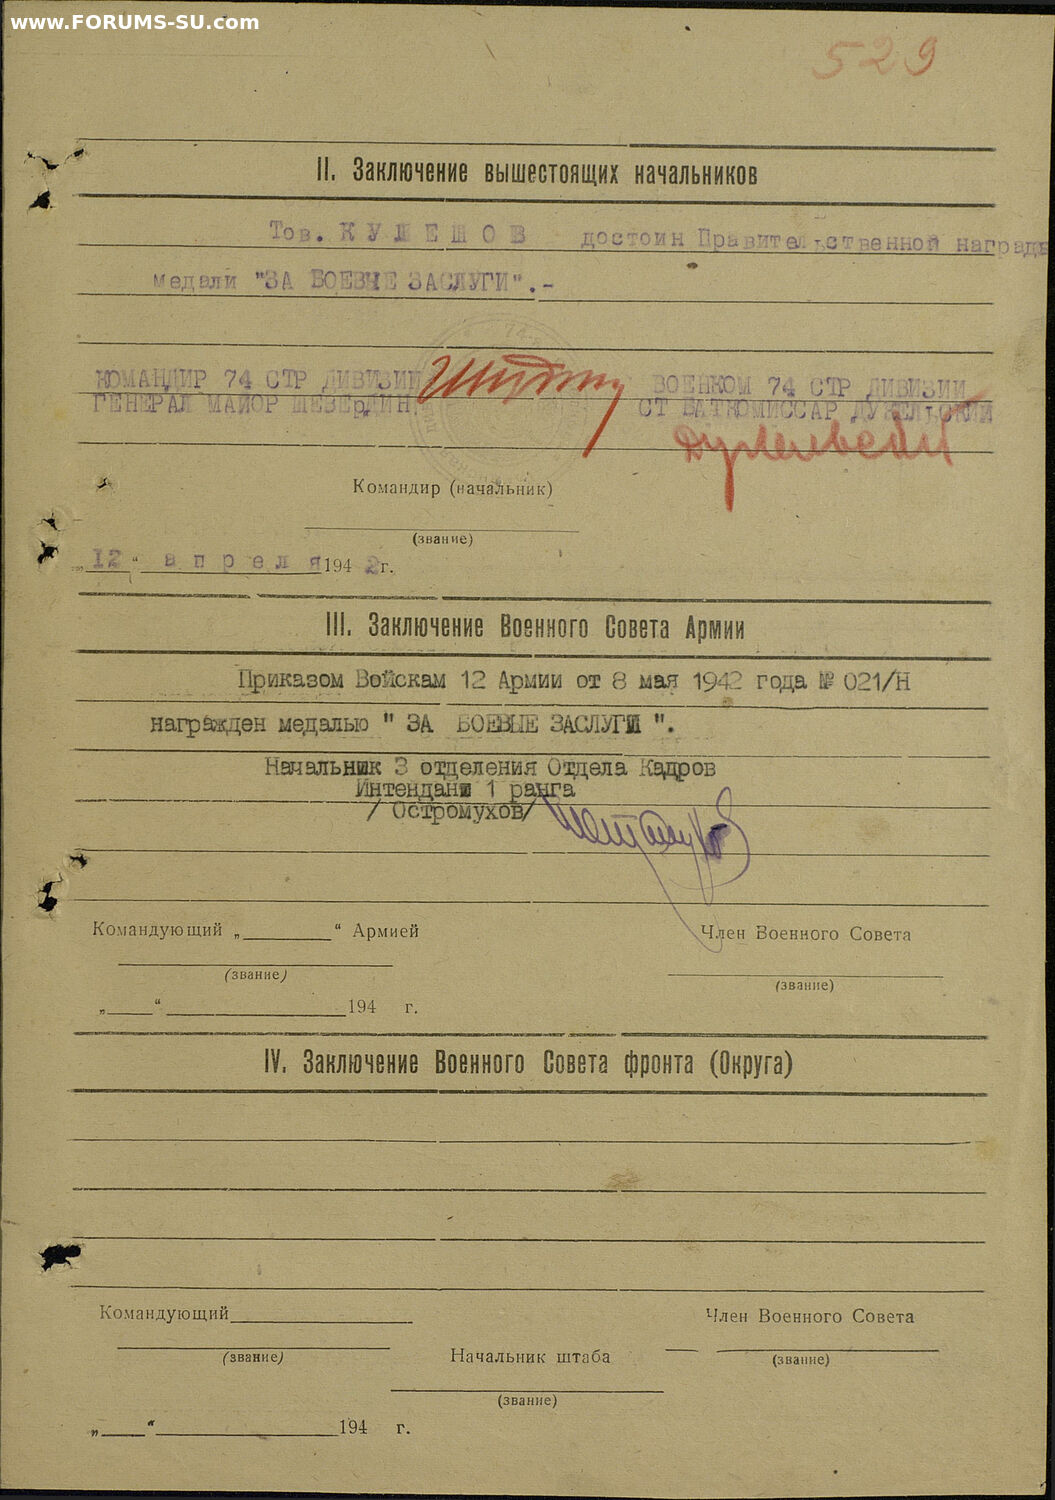 www.FORUMS-SU.com
529
II. Заключение вышестоящих начальников
Тов. КУЛЕШОВ достоин Правительственной награды
медали "ЗА БОЕВЫЕ ЗАСЛУГИ".-
КОМАНДИР 74 СТР ДИВИЗИИ ВОЕНКОМ 74 СТР ДИВИЗИИ
ГЕНЕРАЛ МАЙОР ШЕВЕРДИН. СТ БАТКОМИССАР ДУЖЕЛЬСКИЙ
Командир (начальник)
(звание)
„ 12 “ апреля 194 2 г.
III. Заключение Военного Совета Армии
Приказом Войскам 12 Армии от 8 мая 1942 года № 021/Н
награжден медалью " ЗА БОЕВЫЕ ЗАСЛУГИ ".
Начальник 3 отделения Отдела Кадров
Интендант 1 ранга
/ Остромухов/
Командующий „________“ Армией Член Военного Совета
(звание) (звание)
„____“ ________________194 г.
IV. Заключение Военного Совета фронта (Округа)
Командующий________________ Член Военного Совета
(звание) Начальник штаба (звание)
(звание)
„____“ ________________194 г.